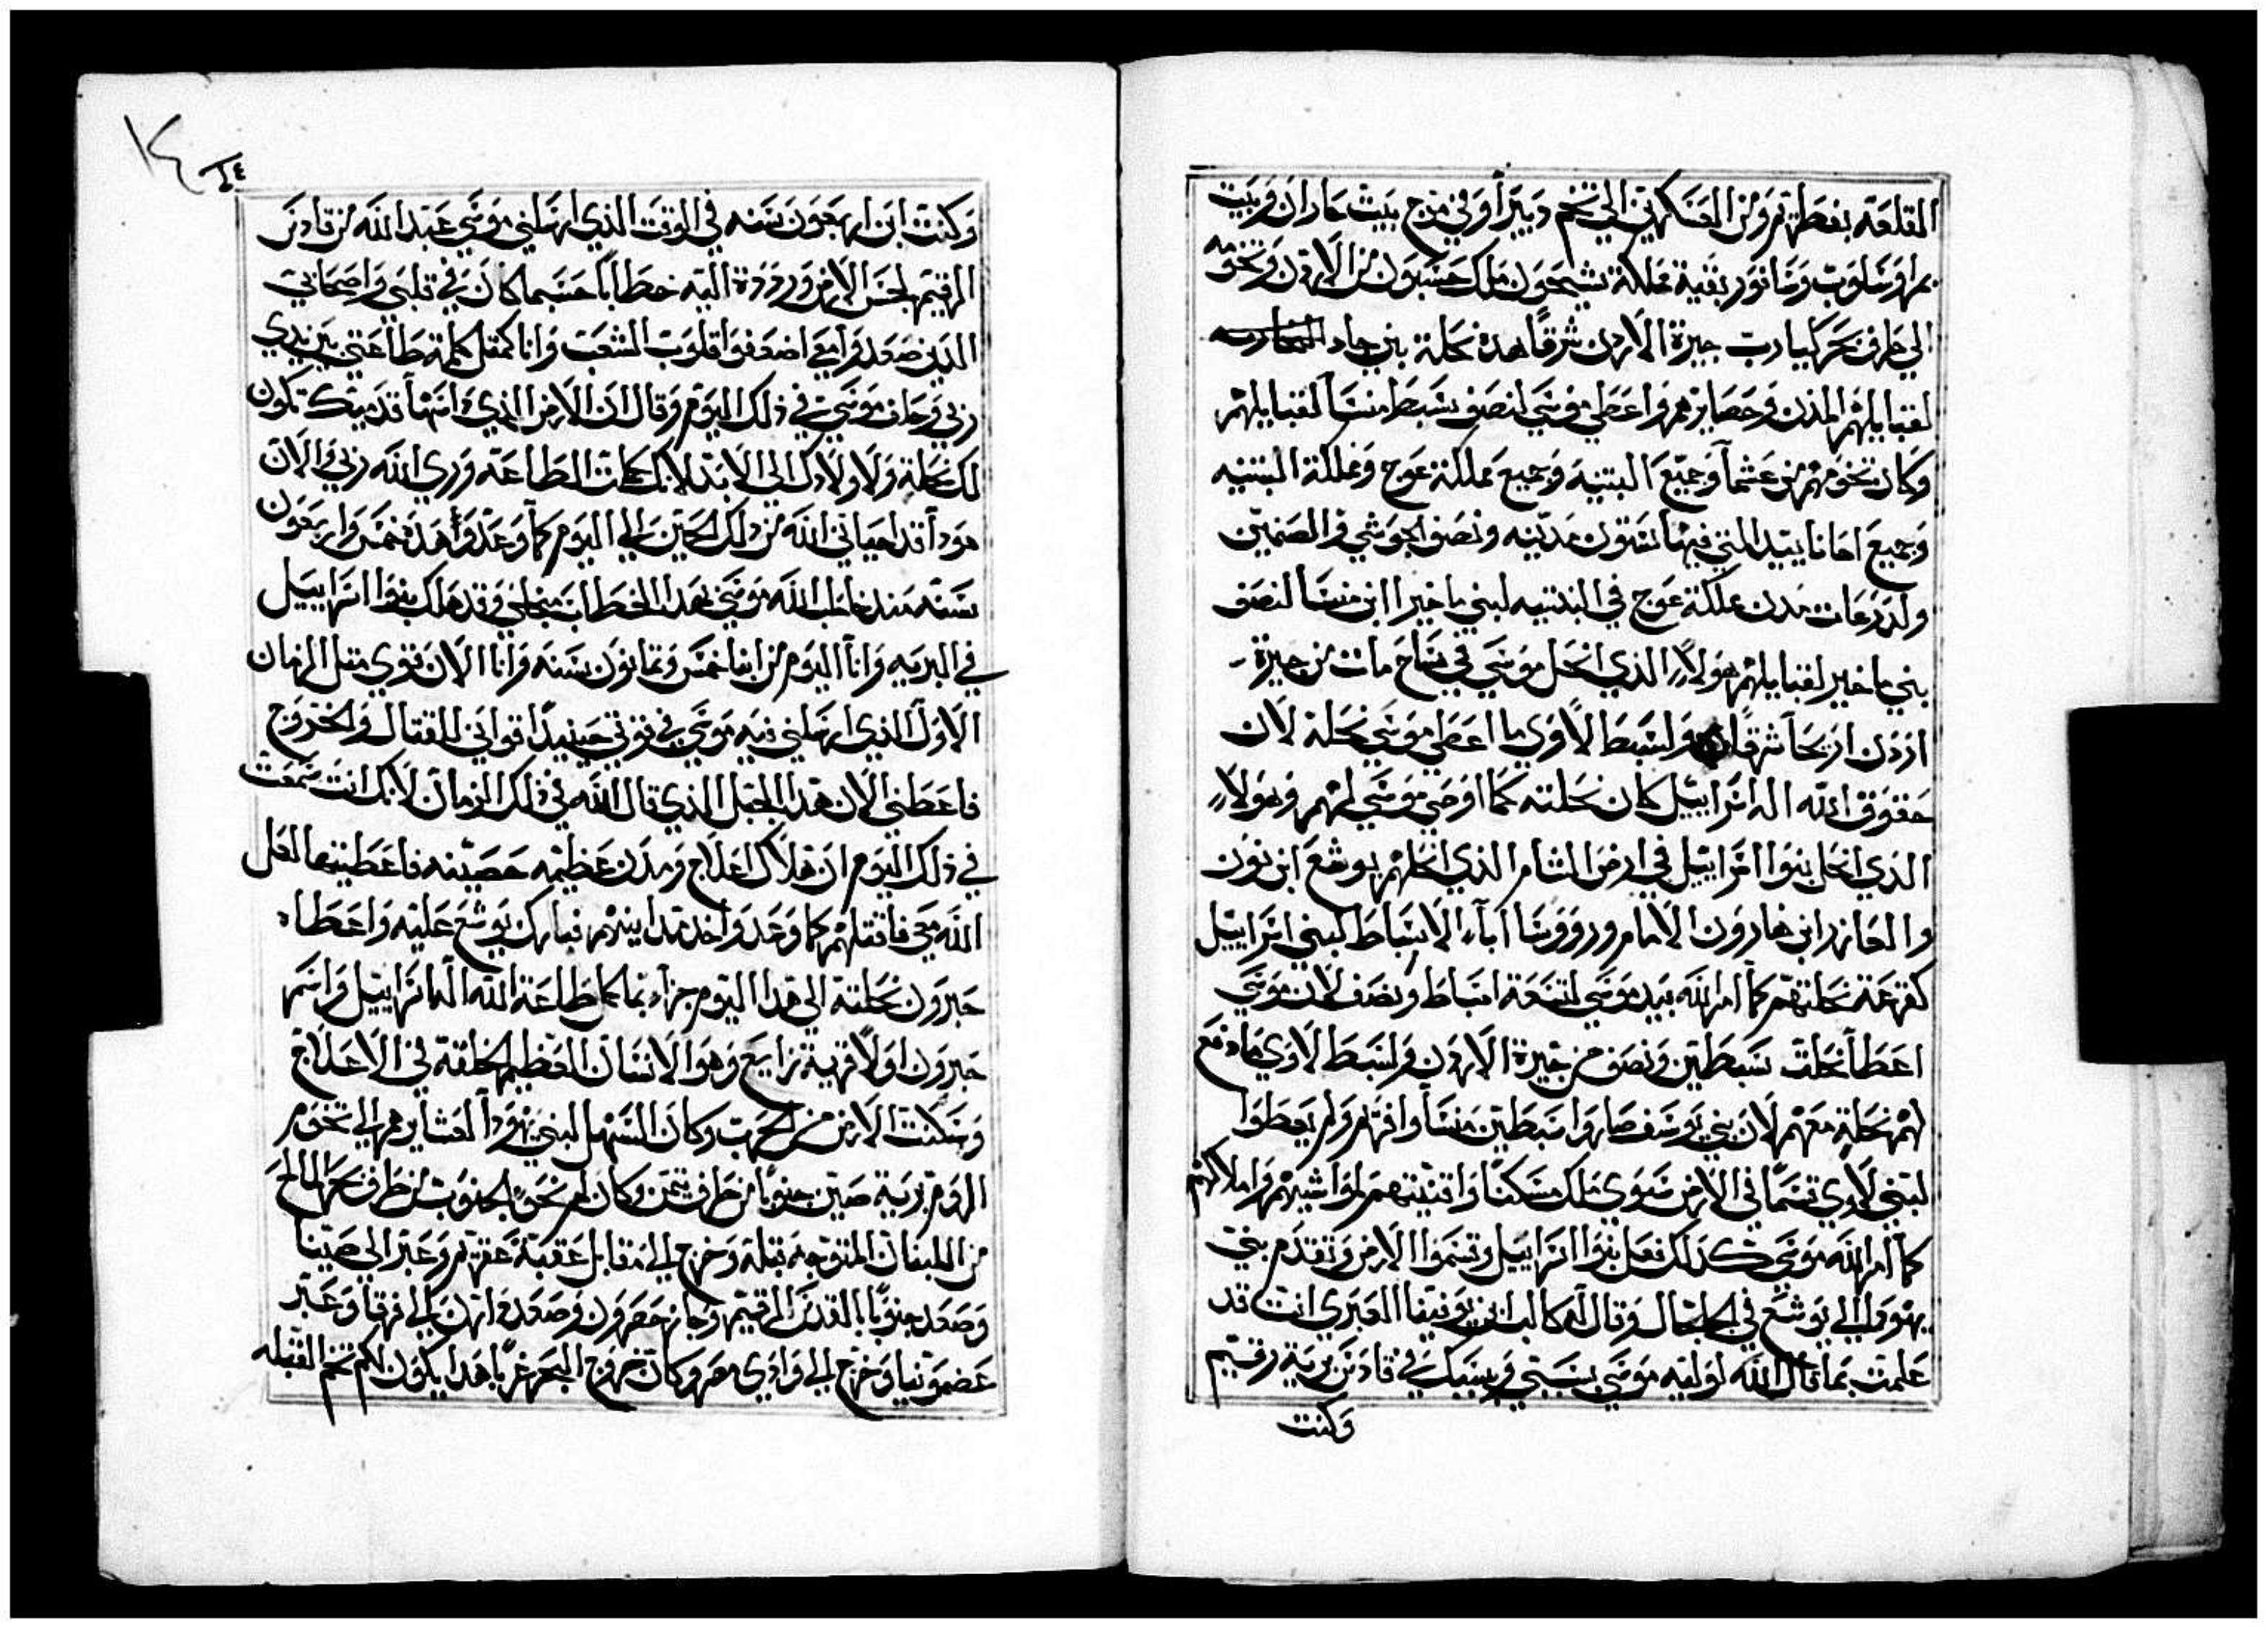 القلعه بغطهتم ومن العسكرين الي تخم دبيرا وفي مرج بيت حاران وبيت
بمرا وسلوب وسافور بقية مملكة بشيحون ملك حسبون من الاردن وتخومه
الي طرف بحر كيبارت جيزة الاردن شرقا هده نحلة بني جاد
لقبايلهم المدن وحصايرهم واعطي موسي لنصف سبط منسا لقبايلهم
وكان تخومهم من عشما وجميع البتنيه وجميع مملكة عوج ومملكة البتنيه
وجميع احانا ييد التي فيها ستون مدينه ونصف الجوشي والصنمين
ولدرعات مدن مملكة عوج في البدنيه لبني ماخيرا ابن منسا لنصف
بني ماخير لقبايلهم هولاء الذي انحل موسي في بساح مات من جيزة
اردن اريحا شرقا ولسبط لاوي ما اعطي موسي نحلة لان
حقوق الله اله اسراييل كان نحلته كما اوصي موسي لهم وهولاء
الدي انحل بنوا اسراييل في ارض الشام الذي انحلهم يوشع ابن نون
والعازر ابن هارون الامام وروورسا آباء الاسباط لبني اسراييل
كقرعة نحلتهم كما امر الله بيد موسي لتسعة اسباط ونصف لان موسي
اعطا نحلت سبطين ونصف من جيزة الاردن ولسبط لاوي ما دفع
لهم نحلة معهم لان بني يوسف صاروا سبطين منسا وافرام ولم يعطوا
لبني لاوي قسما في الارض سوي ملك مسكنا واقنيتهم لمواشيهم واملاكهم
كما امر الله موسي كدلك فعل بنوا اسراييل وقسموا الارض وتقدم بني
يهودا الي يوشع في الجلجال وقال له كالب ابن يوفنيا العبري انت قد
علمت بما قال الله لوليه موسي بسبتي وبسببك في قادس برية رقيم
وكنت
١٤
وكنت ابن اربعون سنه في الوقت الذي ارسلني موسي عبد الله من قادس
الرقيم لجس الارض ورددة اليه خطابا حسبما كان في قلبي واصحابي
الدين صعدوا معي اضعفوا قلوب الشعب وانا كمثل كلمة طاعتي بين يدي
ربي وحلف موسي في ذلك اليوم وقال ان الارض الذي داستها قدميك تكون
لك نحلة ولاولادك الي الابد لانك كملت الطاعه وري الله ربي والان
هودا قد احياني الله من دلك الحين الي اليوم كما وعد وهده خمس واربعون
سنه مند خاطب الله موسي بهدا الخطاب من اجلي وقد هلك بنوا اسراييل
في البريه وانا اليوم من ابنا خمس وتمانون سنه وانا الان قوي متل الزمان
الاول الدي ارسلني فيه موسي في قوتي حينيد اقواتي للقتال والخروج
فاعطني الان هدا الجبل الدي قال الله في دلك الزمان لانك انت سمعت
في دلك اليوم ان هلاك اعلاج ومدن عظيمه حصينه فاعطينها لعل
الله معي فاقتلهم كما وعد واخد مداينهم فبارك يوشع عليه واعطاه
حبرون نحلته الي هدا اليوم جزاء بما كمل طاعة الله اله اسراييل واسم
حبرون اولا قرية ترابيع وهو الانسان العظيم الخلقه في الاعلاج
وسكنت الارض من الحرب وكان السهل لبني يهودا لعشايرهم الي تخوم
الروم برية صين جنوبا من طرف تيمن وكان لهم تخوم الجنوب من طرف بحر المالح
من اللسان المتوجه قبلة وخرج الي مقابل عقبة عقرم وعبر الي صينا
وصعد جنوبا بالقدس الرقيم وجاز حصرون وصعد الي ادرن الي فرقا وعبر
عضمونيا وخرج الي وادي مصر وكان خروج البحر غربا هدا يكون لكم تخم القبله